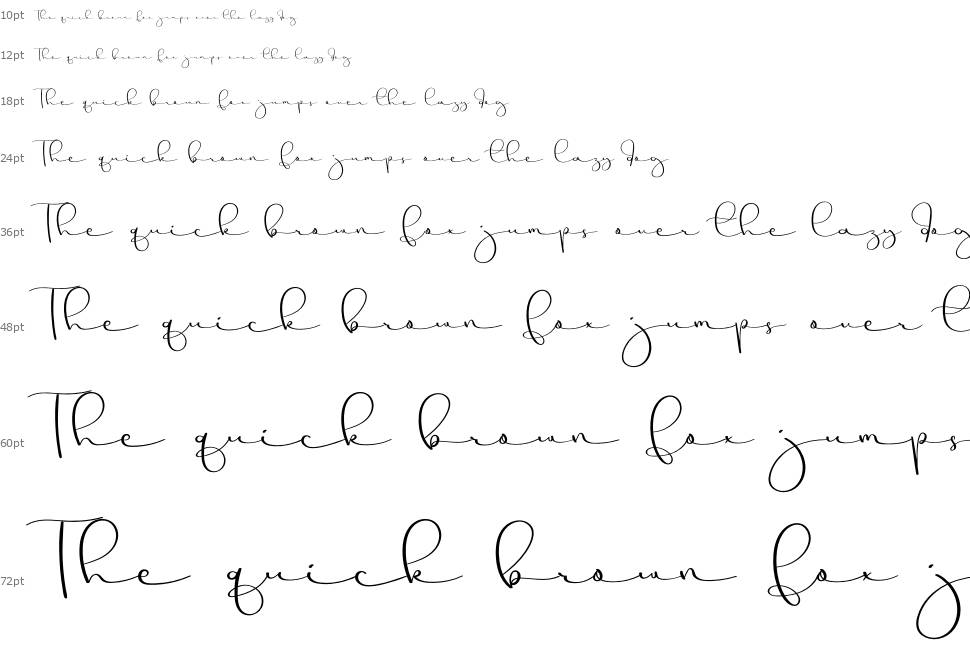 10pt The quick brown fox jumps over the lazy dog
12pt The quick brown fox jumps over the lazy dog
18pt The quick brown fox jumps over the lazy dog
24pt The quick brown fox jumps over the lazy dog
36pt The quick brown fox jumps over the lazy dog
48pt The quick brown fox jumps over t
60pt The quick brown fox jumps
72pt The quick brown fox j